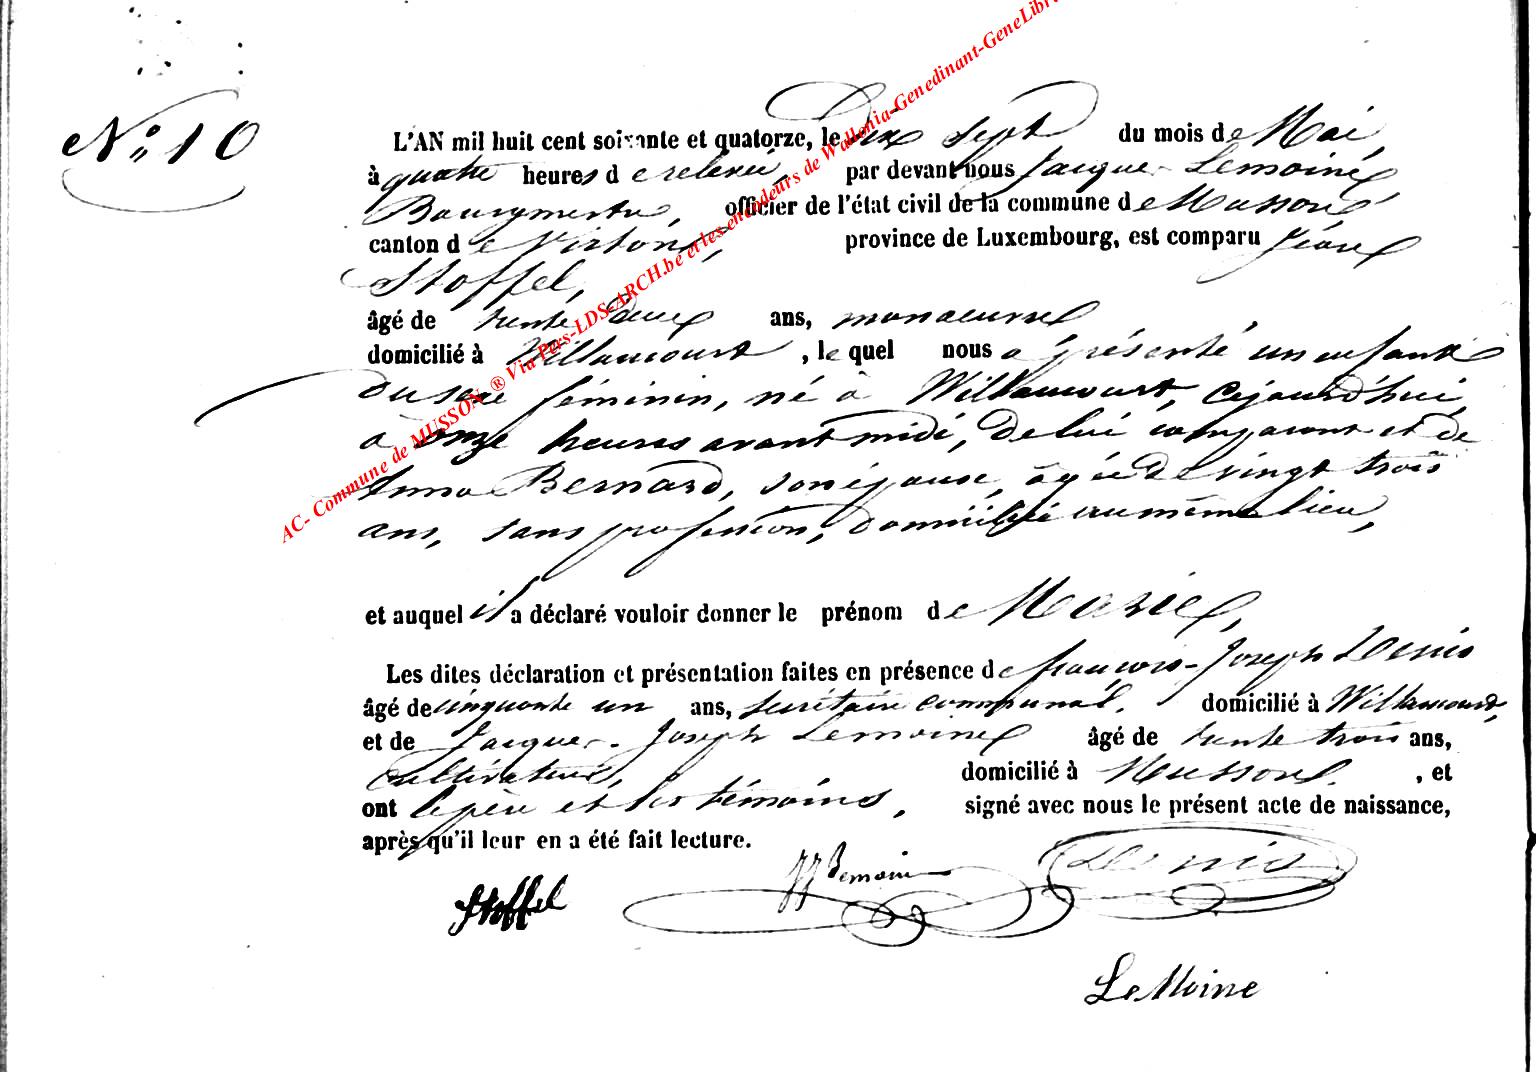 N° 10
L'AN mil huit cent soixante et quatorze, le Dix sept du mois de Mai,
à quatre heures de relevée, par devant nous Jacques Lemoine
Bourgmestre, officier de l'état civil de la commune de Musson,
canton de Virton, province de Luxembourg, est comparu Jean
Stoffel,
âgé de trente deux ans, manoeuvre
domicilié à Willancourt, le quel nous a présenté un enfant
du sexe féminin, né à Willancourt, cejourd'hui,
à onze heures avant midi, de lui comparant et de
Anna Bernard, son épouse, âgée de vingt trois
ans, sans profession, domiciliée au même lieu,
et auquel il a déclaré vouloir donner le prénom de Marie,
Les dites déclaration et présentation faites en présence de françois-Joseph Denis
âgé de cinquante un ans, secrétaire communal, domicilié à Willancourt,
et de Jacques-Joseph Lemoine âgé de trente trois ans,
cultivateur, domicilié à Musson, et
ont le père et les témoins, signé avec nous le présent acte de naissance,
après qu'il leur en a été fait lecture.
Stoffel JJ Lemoine Denis
LeMoine
AC- Commune de MUSSON ® Via Pers-LDS-ARCH.be et les encodeurs de Wallonia-Genedinant-GeneLibr